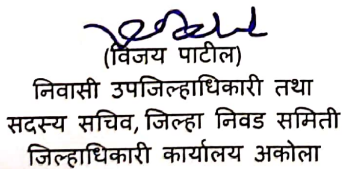 (विजय पाटील)
निवासी उपजिल्हाधिकारी तथा
सदस्य सचिव, जिल्हा निवड समिती
जिल्हाधिकारी कार्यालय अकोला